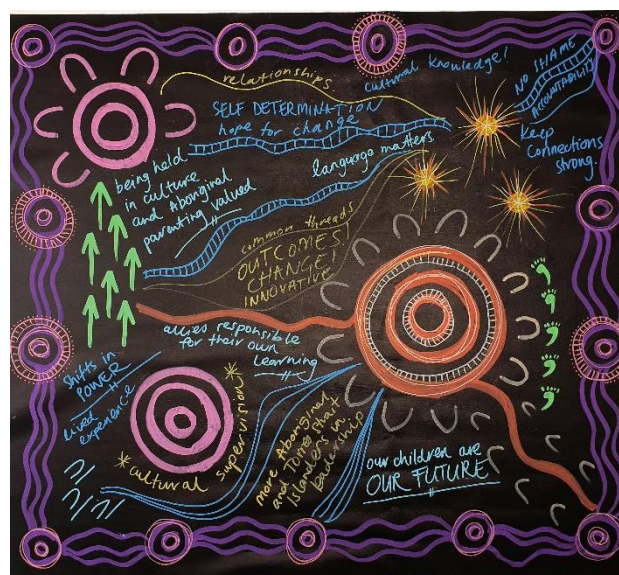 relationships
cultural knowledge!
NO SHAME
ACCOUNTABILITY
SELF DETERMINATION
hope for change
Keep
connections
strong.
being held
in culture
and Aboriginal
parenting valued
language matters
common threads
OUTCOMES!
CHANGE!
INNOVATIVE
allies responsible
for their own
learning
Shifts in
POWER
lived
experience
*cultural supervision*
more Aboriginal
and Torres Strait
Islanders in
leadership
our children are
OUR FUTURE